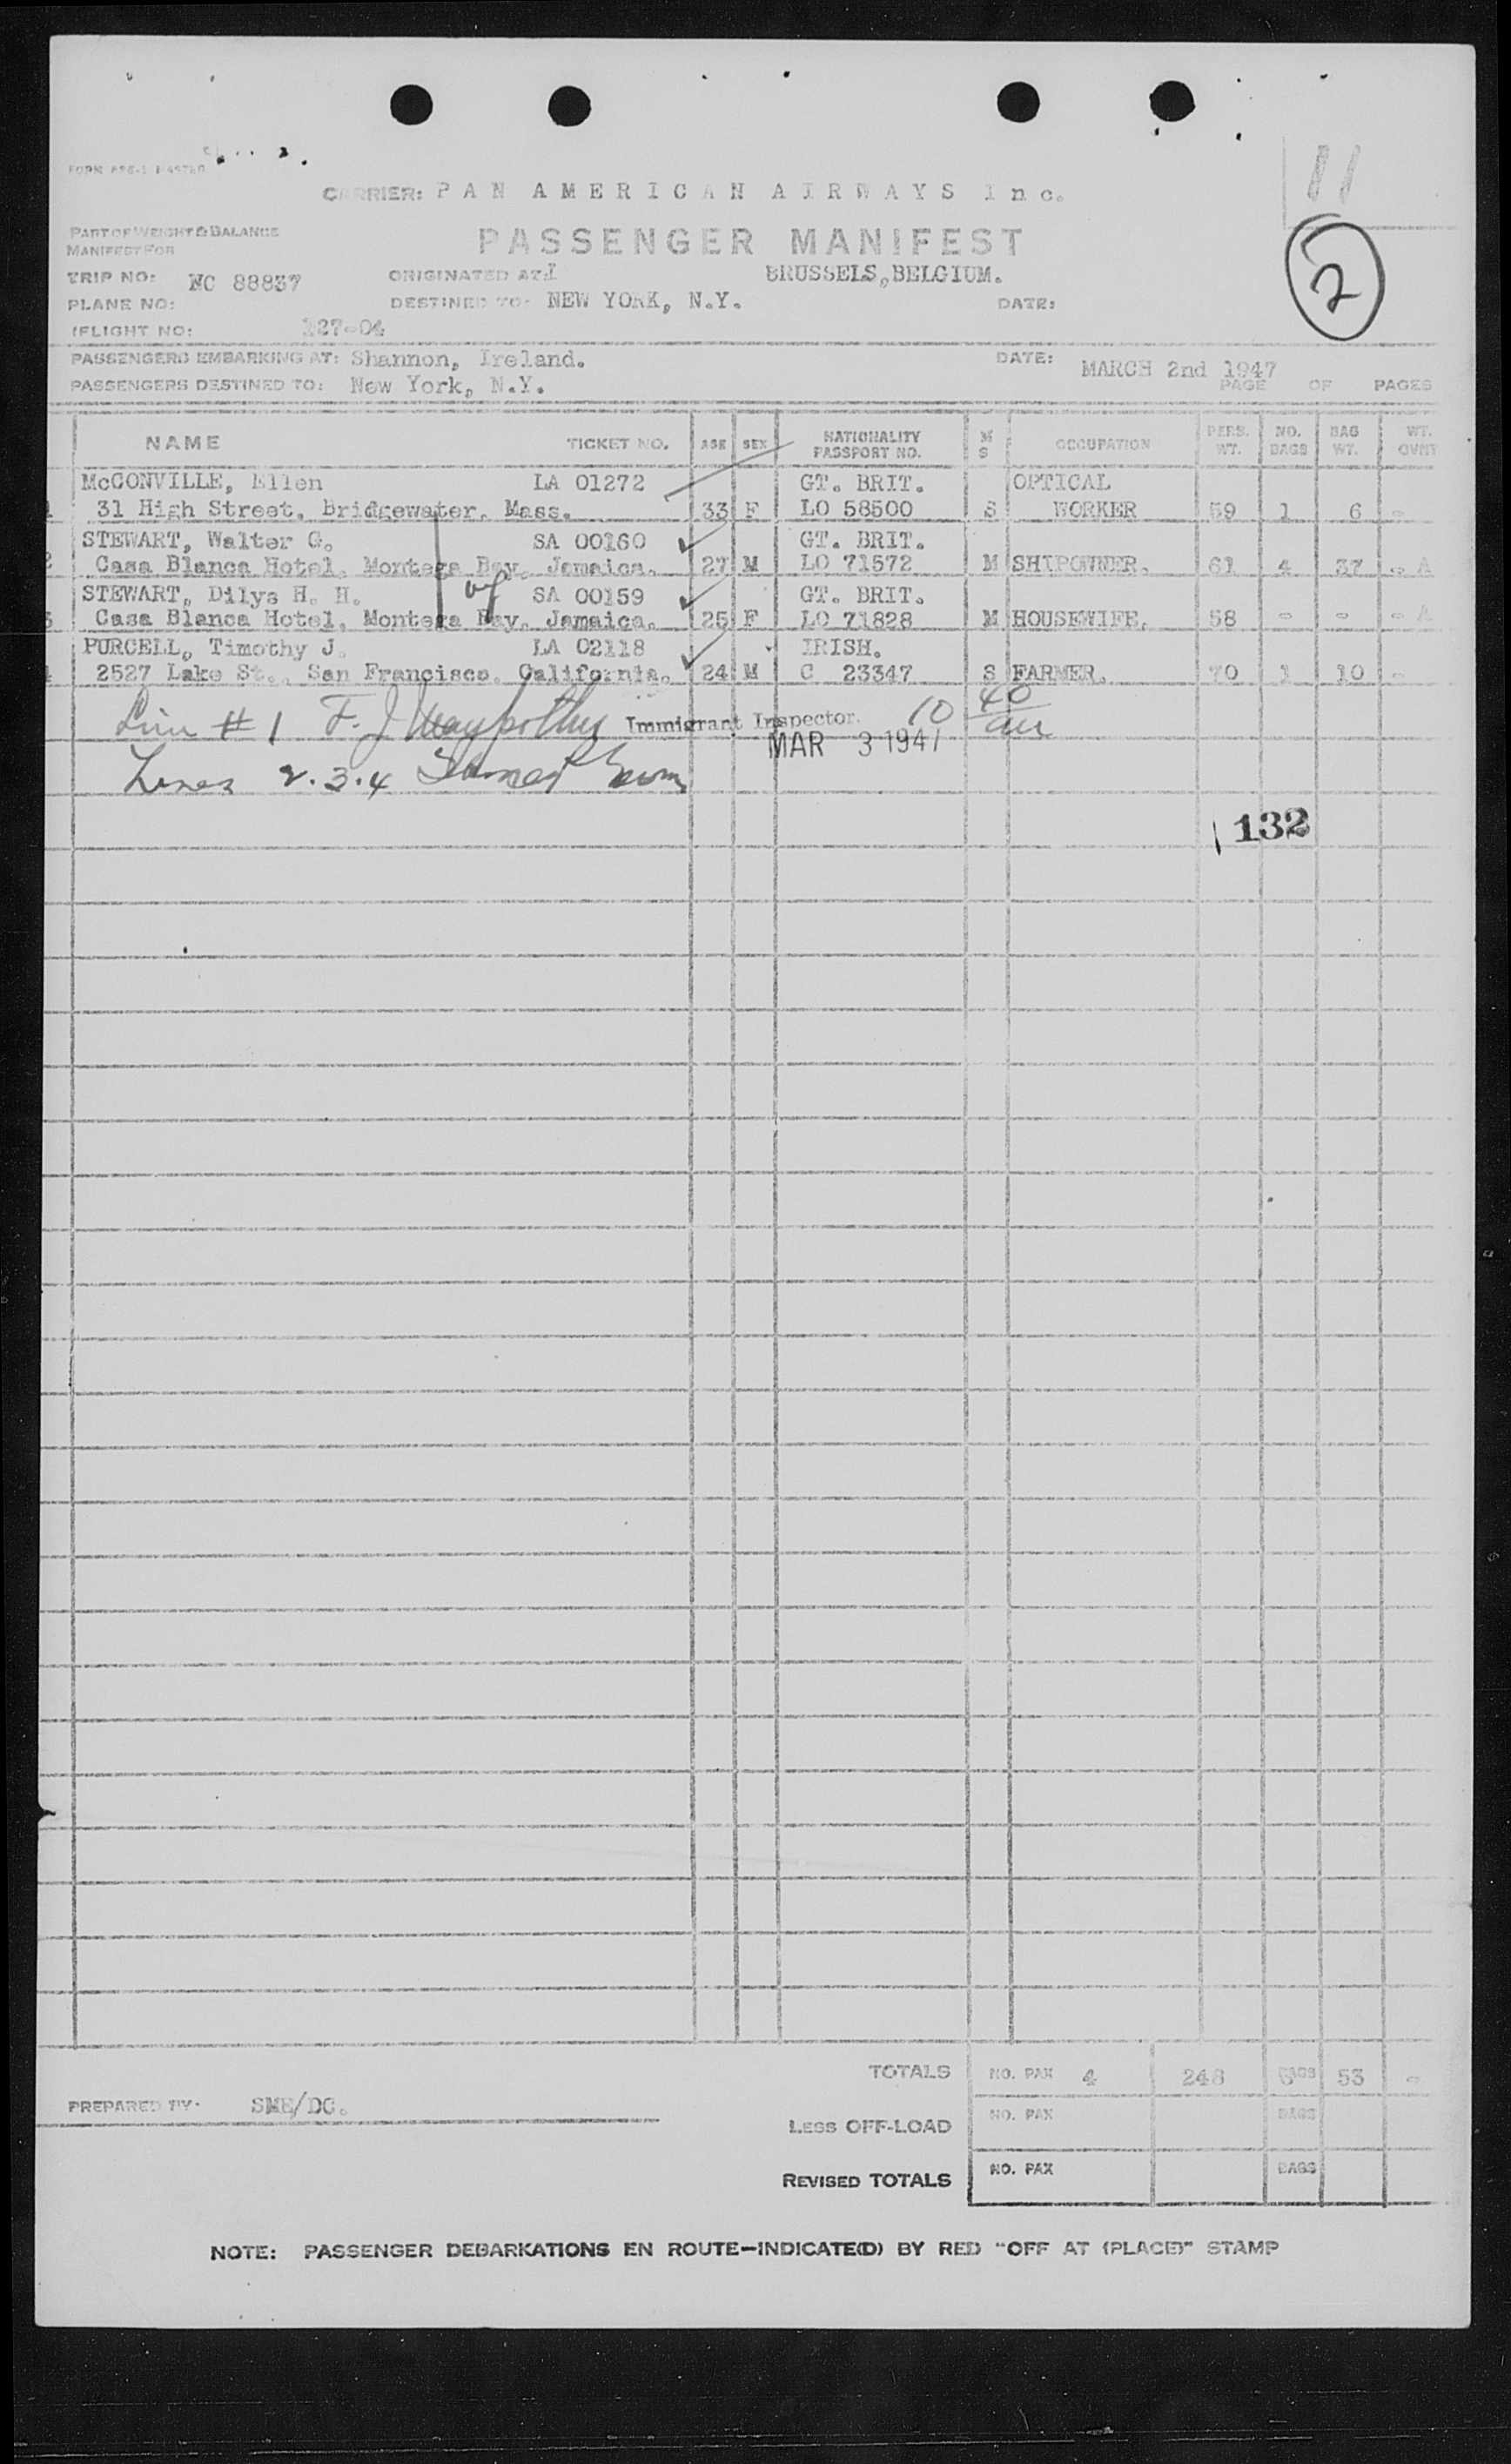 11
CARRIER: PAN AMERICAN AIRWAYS Inc.
PART OF WEIGHT & BALANCE
MANIFEST FOR
PASSENGER MANIFEST
2
TRIP NO: NC 88837 ORIGINATED AT: BRUSSELS, BELGIUM.
PLANE NO: DESTINED TO: NEW YORK, N.Y. DATE:
(FLIGHT NO: 127-04
PASSENGERS EMBARKING AT: Shannon, Ireland. DATE: MARCH 2nd 1947
PASSENGERS DESTINED TO: New York, N.Y. PAGE OF PAGES
NAME TICKET NO. AGE SEX NATIONALITY PASSPORT NO. M S OCCUPATION PERS. WT. NO. BAGS BAG WT. WT.
McCONVILLE, Ellen LA 01272 GT. BRIT. OPTICAL
1 31 High Street, Bridgewater, Mass. 33 F LO 58500 S WORKER 59 1 6 -
STEWART, Walter G. SA 00160 GT. BRIT.
2 Casa Blanca Hotel, Montega Bay, Jamaica. 27 M LO 71572 M SHIPOWNER. 61 4 37 - A
STEWART, Dilys H. H. SA 00159 GT. BRIT.
3 Casa Blanca Hotel, Montega Bay, Jamaica. 25 F LO 71828 M HOUSEWIFE. 58 - - - A
PURCELL, Timothy J. LA 02118 IRISH.
4 2527 Lake St., San Francisco, California. 24 M C 23347 S FARMER. 70 1 10 -
Line #1 F. J. Immigrant Inspector. 10 40
MAR 3 1947
Lines 2.3.4
132
TOTALS NO. PAX 4 248 BAGS 53 -
PREPARED BY: SME/DC.
LESS OFF-LOAD NO. PAX BAGS
REVISED TOTALS NO. PAX BAGS
NOTE: PASSENGER DEBARKATIONS EN ROUTE-INDICATE(D) BY RED "OFF AT (PLACE)" STAMP